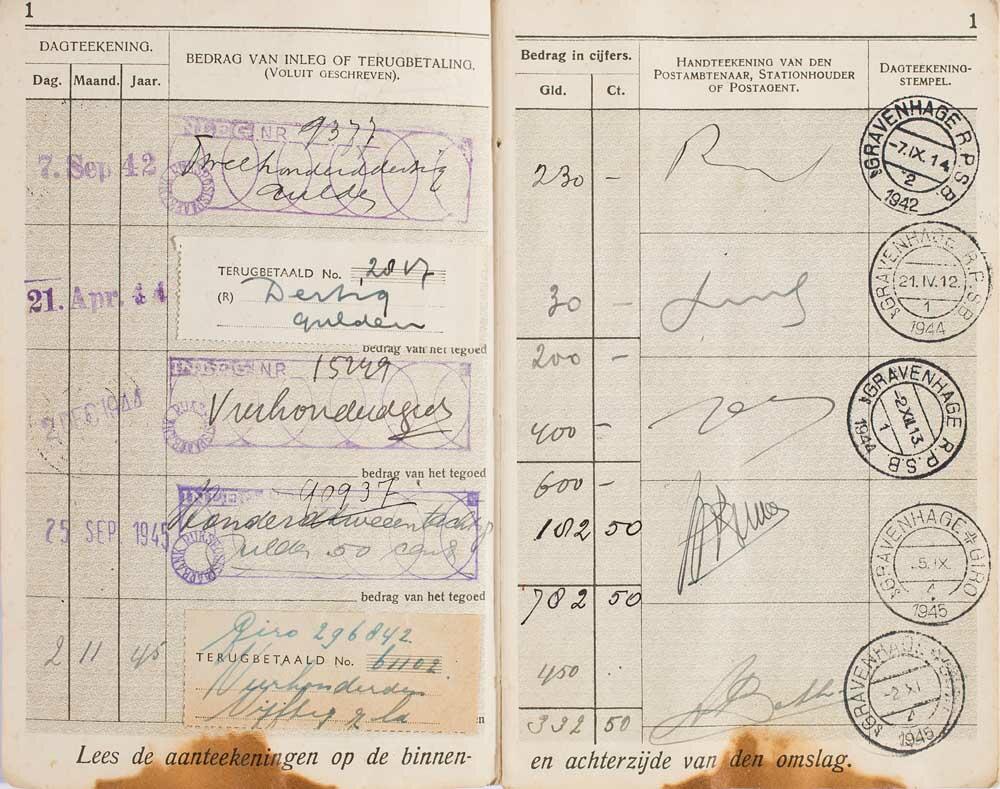 1
DAGTEEKENING.
BEDRAG VAN INLEG OF TERUGBETALING.
(VOLUIT GESCHREVEN).
Dag. Maand. Jaar.
INLEG NR 9377
7. Sep 42
Tweehonderddertig
gulden
TERUGBETAALD No. 2817
21. Apr. 44
(R) Dertig
gulden
bedrag van het tegoed
INLEG NR 15249
2 DEC 1944
Vierhonderd gld
bedrag van het tegoed
INLEG 90937
25 SEP. 1945
Honderdtweeentachtig
gulden 50 cent
bedrag van het tegoed
Giro 296842
2 11 45
TERUGBETAALD No. 61102
Vierhonderden
Vijftig gld
Lees de aanteekeningen op de binnen-
1
Bedrag in cijfers.
Gld. Ct.
HANDTEEKENING VAN DEN
POSTAMBTENAAR, STATIONHOUDER
OF POSTAGENT.
DAGTEEKENING-
STEMPEL.
230 -
'SGRAVENHAGE R.P.S.B
-7.IX.14
2
1942
30 -
'SGRAVENHAGE R.P.S.B
21.IV.12.
1
1944
200 -
400 -
'SGRAVENHAGE R.P.S.B
-2.XII.13.
1
1944
600 -
182 50
'SGRAVENHAGE GIRO
5.IX.
1945
782 50
450
'SGRAVENHAGE
-2.XI
1945
332 50
en achterzijde van den omslag.